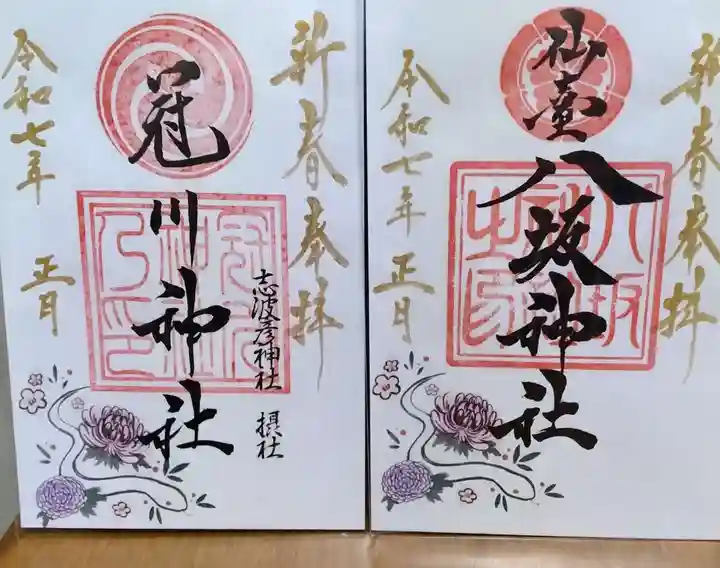 新春奉拝
冠川神社
志波彦神社 摂社
令和七年 正月
新春奉拝
仙臺八坂神社
令和七年 正月